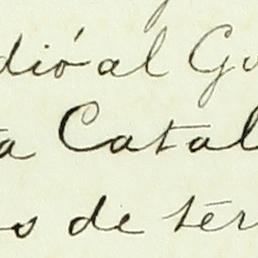 dió al Gu
a Catal
s de tér